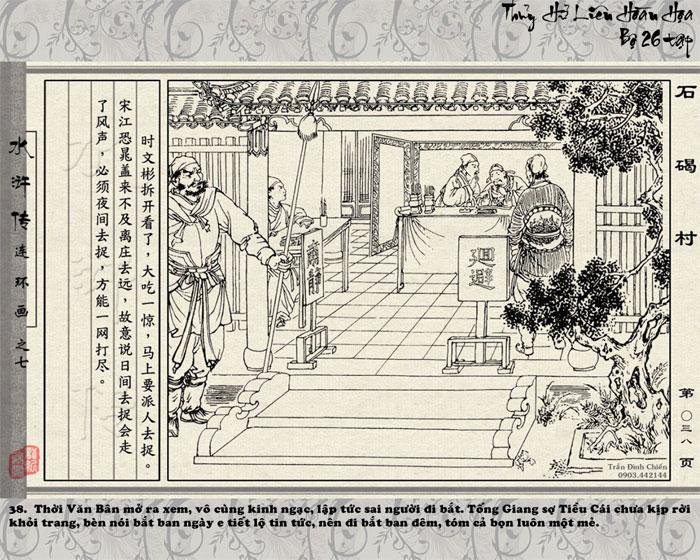 Thủy Hử Liên Hoàn Họa
Bộ 26 tập
石碣村
第〇三八页
水浒传连环画之七
时文彬拆开看了，大吃一惊，马上要派人去捉。
宋江恐晁盖来不及离庄去远，故意说日间去捉会走
了风声，必须夜间去捉，方能一网打尽。
肃静
廻避
Trần Đình Chiến
0903.442144
38. Thời Văn Bân mở ra xem, vô cùng kinh ngạc, lập tức sai người đi bắt. Tống Giang sợ Tiểu Cái chưa kịp rời
khỏi trang, bèn nói bắt ban ngày e tiết lộ tin tức, nên đi bắt ban đêm, tóm cả bọn luôn một mẻ.